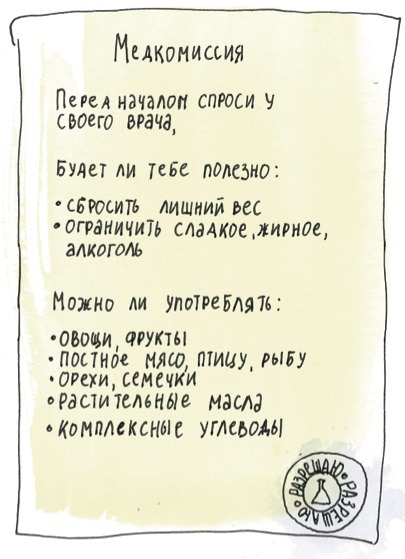 Медкомиссия
Перед началом спроси у
своего врача,
Будет ли тебе полезно:
• сбросить лишний вес
• ограничить сладкое, жирное,
алкоголь
Можно ли употреблять:
• овощи, фрукты
• постное мясо, птицу, рыбу
• орехи, семечки
• растительные масла
• комплексные углеводы
РАЗРЕШАЮ • РАЗРЕШАЮ •